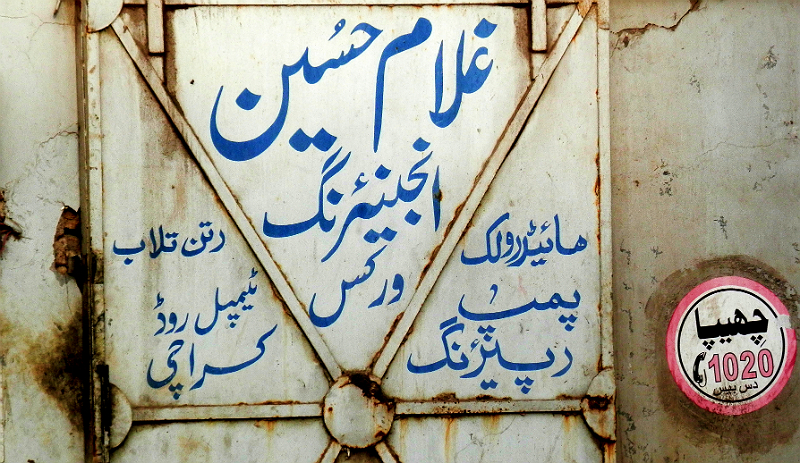 غلام حسین
انجینئرنگ
ورکس
ھائیڈرولک
پمپ
رپیئرنگ
رتن تلاب
ٹیمپل روڈ
کراچی
چھیپا
1020
دس بیس